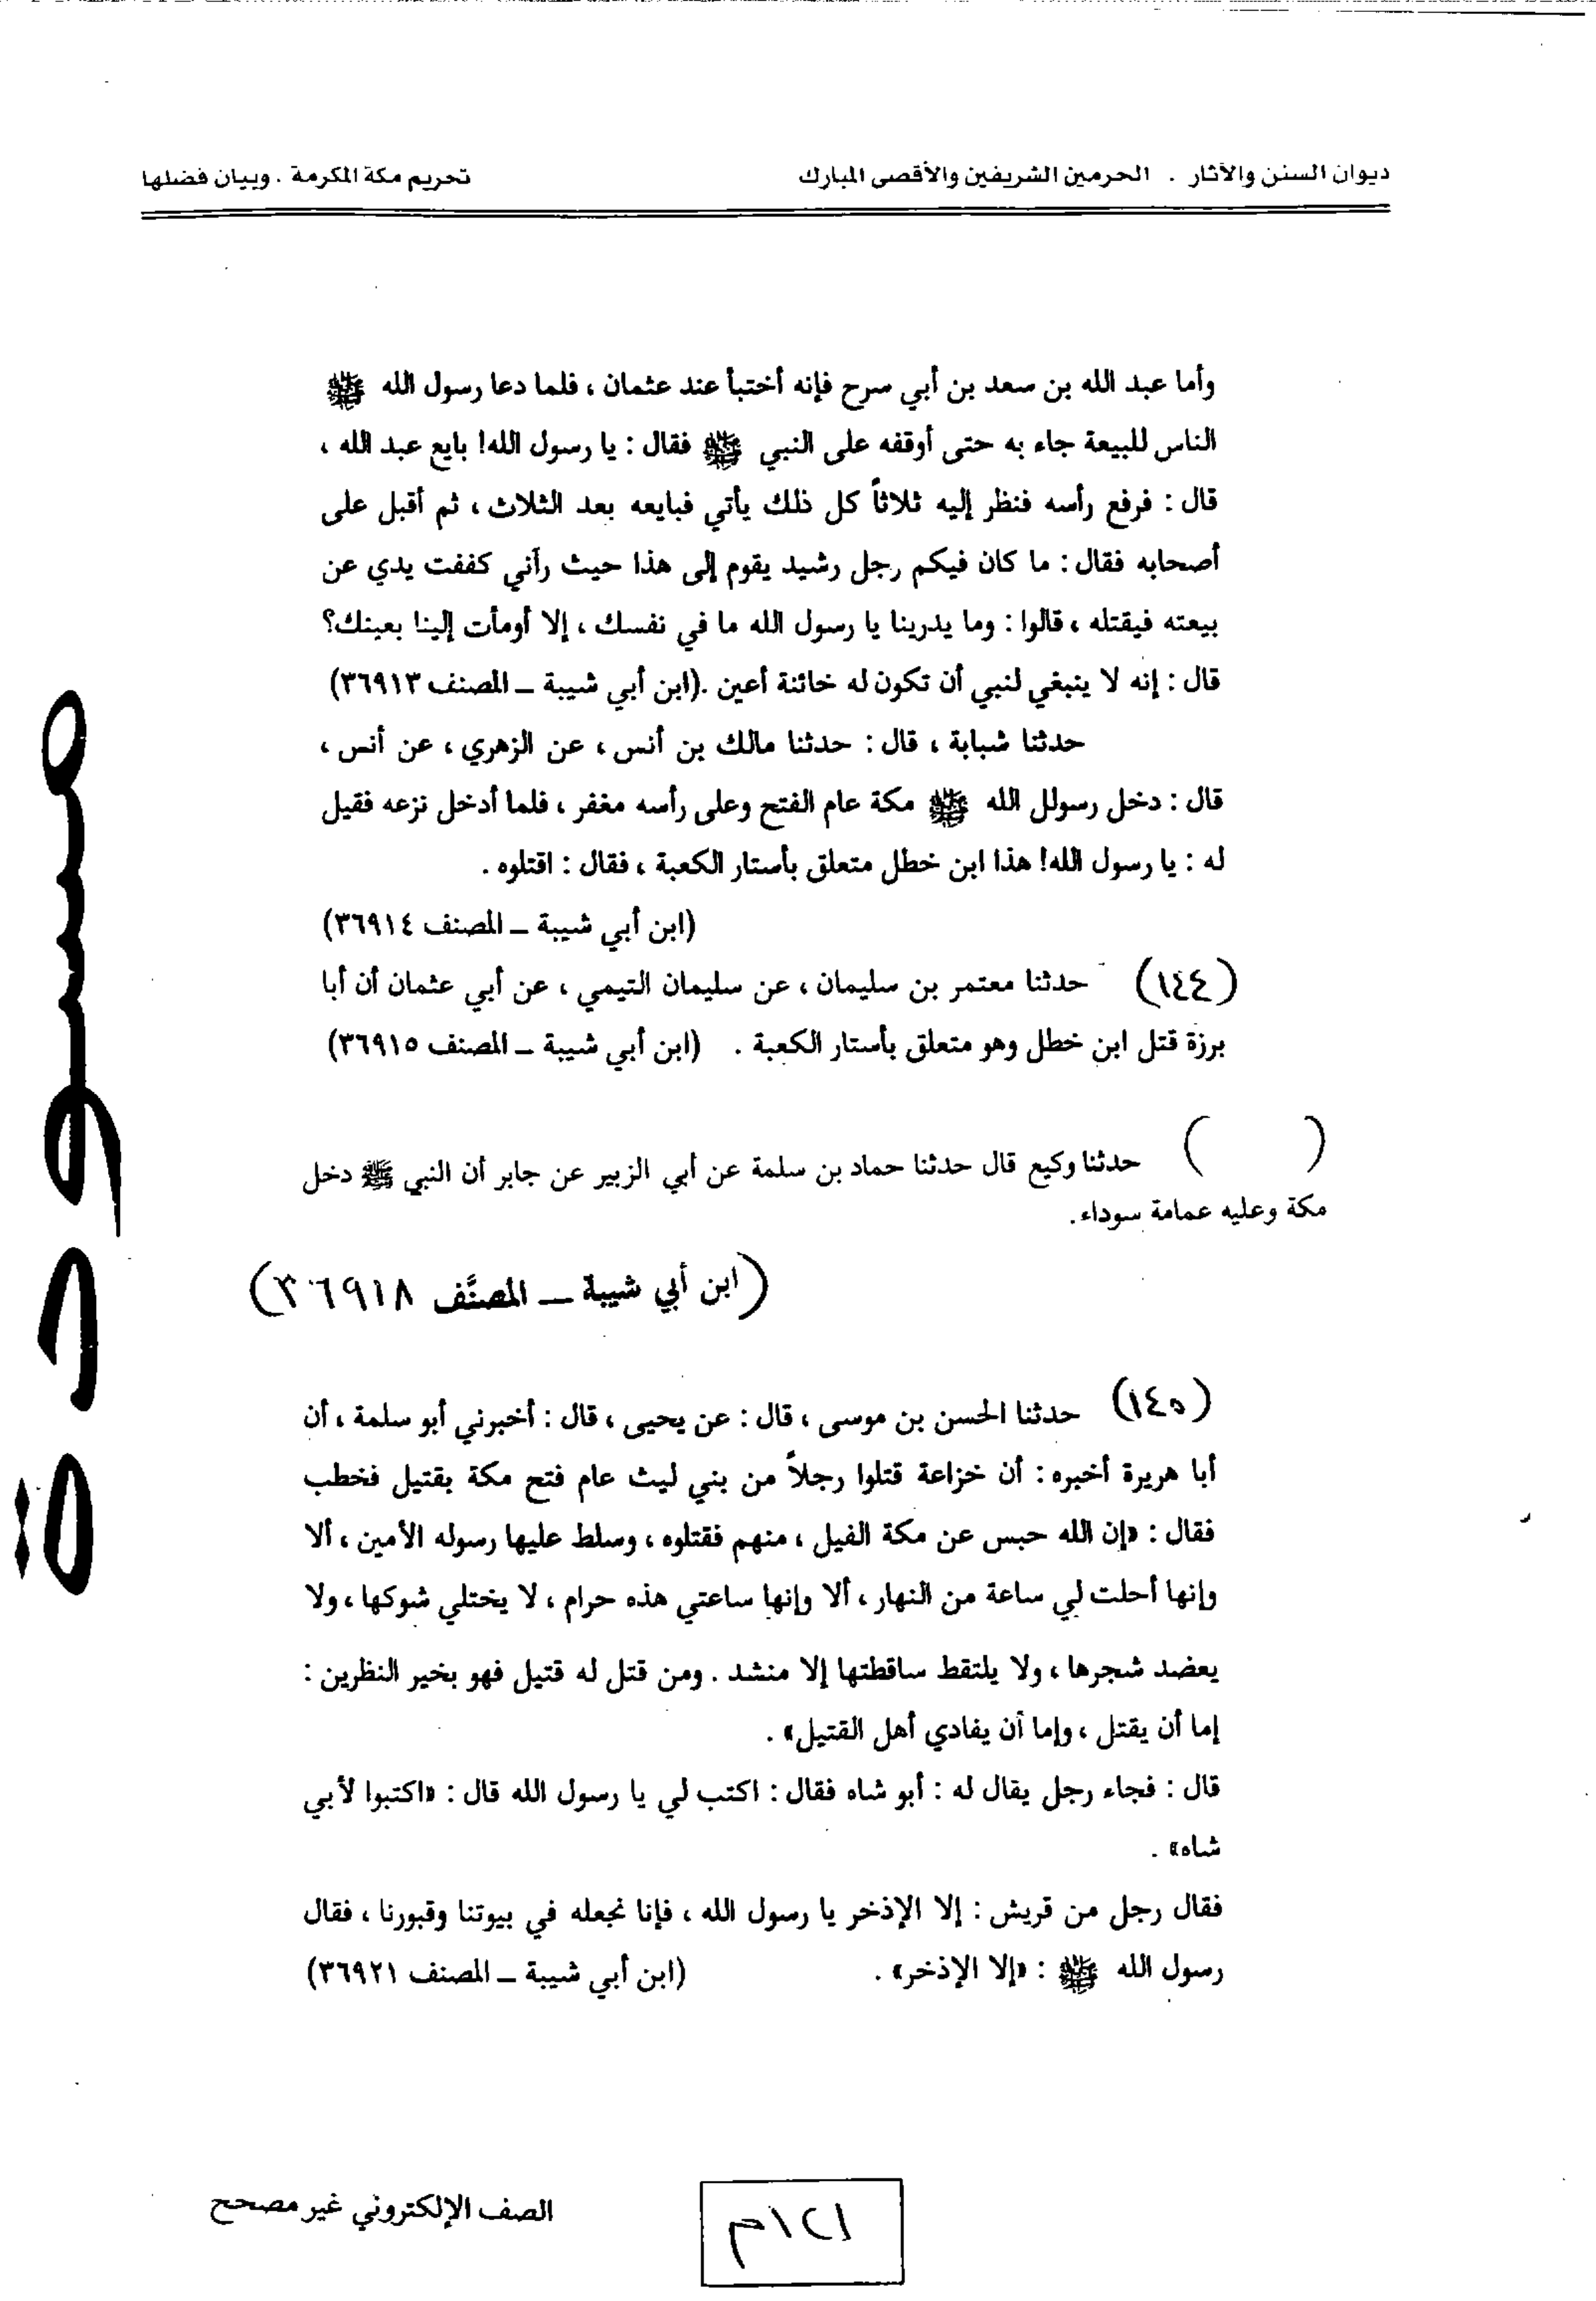 ديوان السنن والآثار . الحرمين الشريفين والأقصى المبارك
تحريم مكة المكرمة . وبيان فضلها
وأما عبد الله بن سعد بن أبي سرح فإنه أختبأ عند عثمان ، فلما دعا رسول الله ﷺ
الناس للبيعة جاء به حتى أوقفه على النبي ﷺ فقال : يا رسول الله! بايع عبد الله ،
قال : فرفع رأسه فنظر إليه ثلاثاً كل ذلك يأتي فبايعه بعد الثلاث ، ثم أقبل على
أصحابه فقال : ما كان فيكم رجل رشيد يقوم إلى هذا حيث رآني كففت يدي عن
بيعته فيقتله ، قالوا : وما يدرينا يا رسول الله ما في نفسك ، إلا أومأت إلينا بعينك؟
قال : إنه لا ينبغي لنبي أن تكون له خائنة أعين .(ابن أبي شيبة – المصنف ٣٦٩١٣)
حدثنا شبابة ، قال : حدثنا مالك بن أنس ، عن الزهري ، عن أنس ،
قال : دخل رسولل الله ﷺ مكة عام الفتح وعلى رأسه مغفر ، فلما أدخل نزعه فقيل
له : يا رسول الله! هذا ابن خطل متعلق بأستار الكعبة ، فقال : اقتلوه .
(ابن أبي شيبة – المصنف ٣٦٩١٤)
(١٤٤) حدثنا معتمر بن سليمان ، عن سليمان التيمي ، عن أبي عثمان أن أبا
برزة قتل ابن خطل وهو متعلق بأستار الكعبة . (ابن أبي شيبة – المصنف ٣٦٩١٥)
( ) حدثنا وكيع قال حدثنا حماد بن سلمة عن أبي الزبير عن جابر أن النبي ﷺ دخل
مكة وعليه عمامة سوداء.
(ابن أبي شيبة – المصنَّف ٣٦٩١٨)
(١٤٥) حدثنا الحسن بن موسى ، قال : عن يحيى ، قال : أخبرني أبو سلمة ، أن
أبا هريرة أخبره : أن خزاعة قتلوا رجلاً من بني ليث عام فتح مكة بقتيل فخطب
فقال : «إن الله حبس عن مكة الفيل ، منهم فقتلوه ، وسلط عليها رسوله الأمين ، ألا
وإنها أحلت لي ساعة من النهار ، ألا وإنها ساعتي هذه حرام ، لا يختلي شوكها ، ولا
يعضد شجرها ، ولا يلتقط ساقطتها إلا منشد . ومن قتل له قتيل فهو بخير النظرين :
إما أن يقتل ، وإما أن يفادي أهل القتيل» .
قال : فجاء رجل يقال له : أبو شاه فقال : اكتب لي يا رسول الله قال : «اكتبوا لأبي
شاه» .
فقال رجل من قريش : إلا الإذخر يا رسول الله ، فإنا نجعله في بيوتنا وقبورنا ، فقال
رسول الله ﷺ : «إلا الإذخر» . (ابن أبي شيبة – المصنف ٣٦٩٢١)
مسودة
١٢١م
الصف الإلكتروني غير مصحح